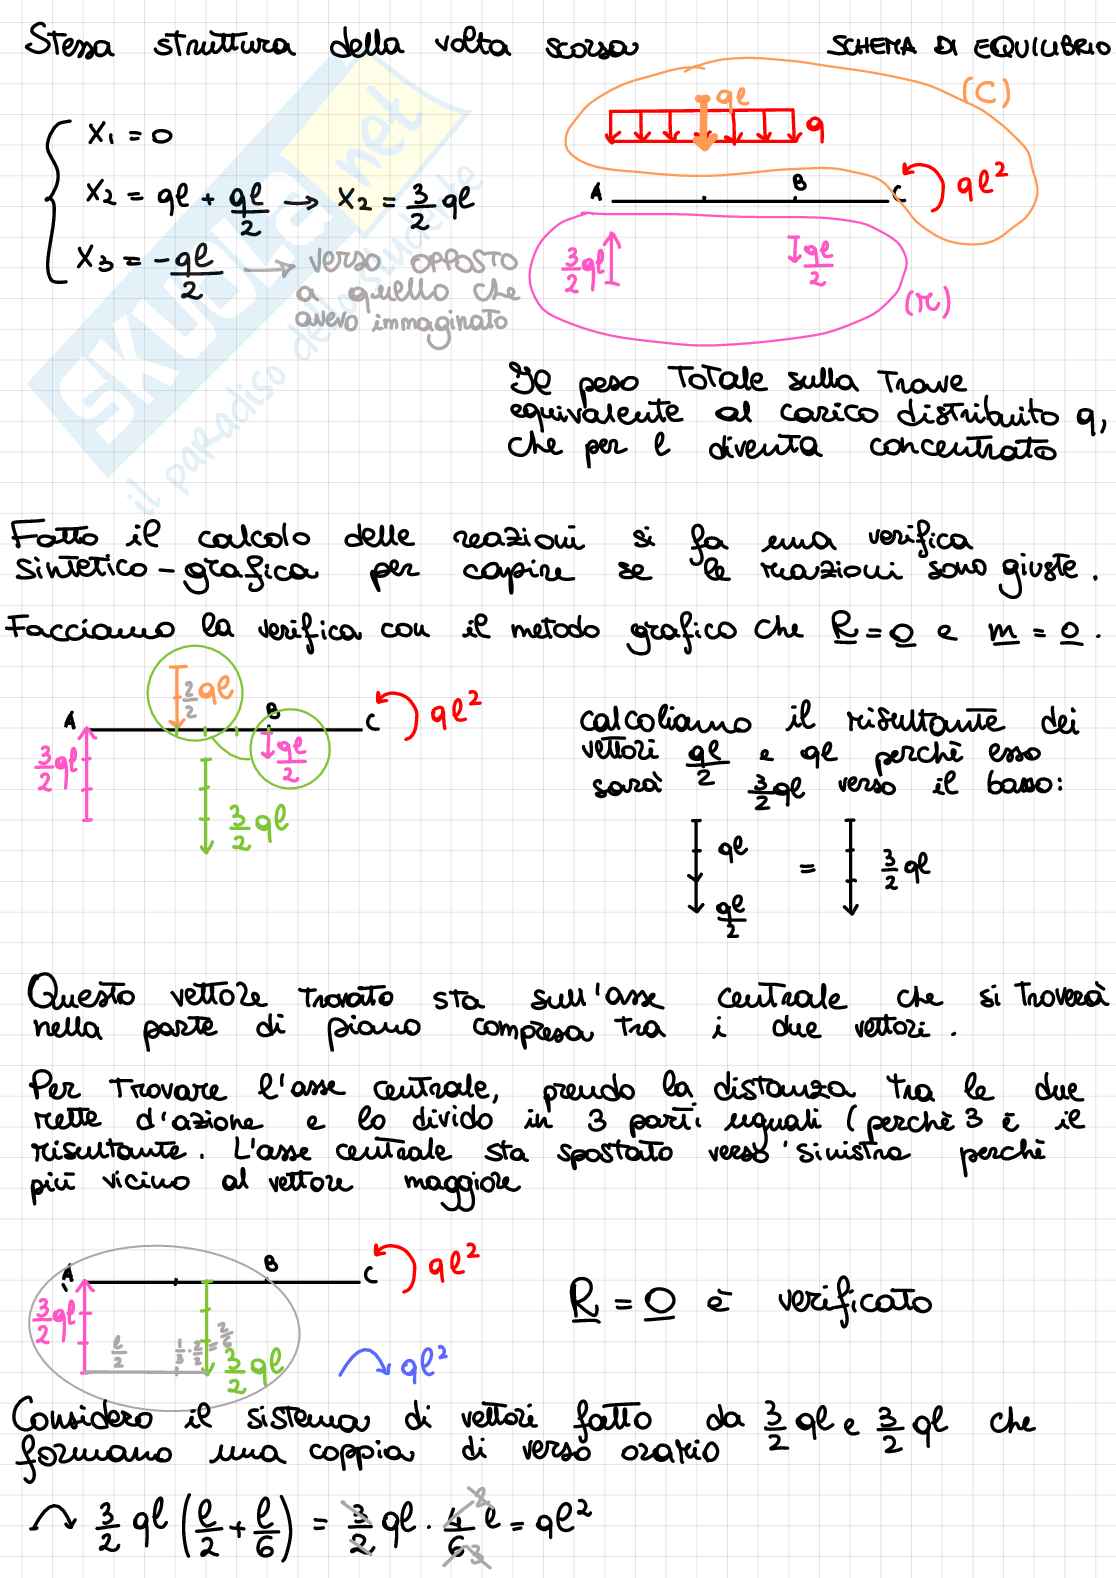 Stessa struttura della volta scorsa
SCHEMA DI EQUILIBRIO
X1 = 0
X2 = ql + ql/2 → X2 = 3/2 ql
X3 = -ql/2 → verso OPPOSTO
a quello che
avevo immaginato
ql
q
(C)
A
B
C
ql²
3/2 ql
ql/2
(R)
Il peso totale sulla trave
equivalente al carico distribuito q,
che per l diventa concentrato
Fatto il calcolo delle reazioni si fa una verifica
sintetico-grafica per capire se le reazioni sono giuste.
Facciamo la verifica con il metodo grafico che R = 0 e m = 0.
2/2 ql
A
B
C
ql²
3/2 ql
ql/2
3/2 ql
calcoliamo il risultante dei
vettori ql/2 e ql perchè esso
sarà 3/2 ql verso il basso:
ql
ql/2
= 3/2 ql
Questo vettore trovato sta sull'asse centrale che si troverà
nella parte di piano compresa tra i due vettori.
Per trovare l'asse centrale, prendo la distanza tra le due
rette d'azione e lo divido in 3 parti uguali (perchè 3 è il
risultante. L'asse centrale sta spostato verso sinistra perchè
più vicino al vettore maggiore
A
B
C
ql²
3/2 ql
l/2
3/2 ql
ql²
R = 0 è verificato
Considero il sistema di vettori fatto da 3/2 ql e 3/2 ql che
formano una coppia di verso orario
3/2 ql (l/2 + l/6) = 3/2 ql · 4/6 l = ql²
SKUOLA.net
il paradiso dello studente